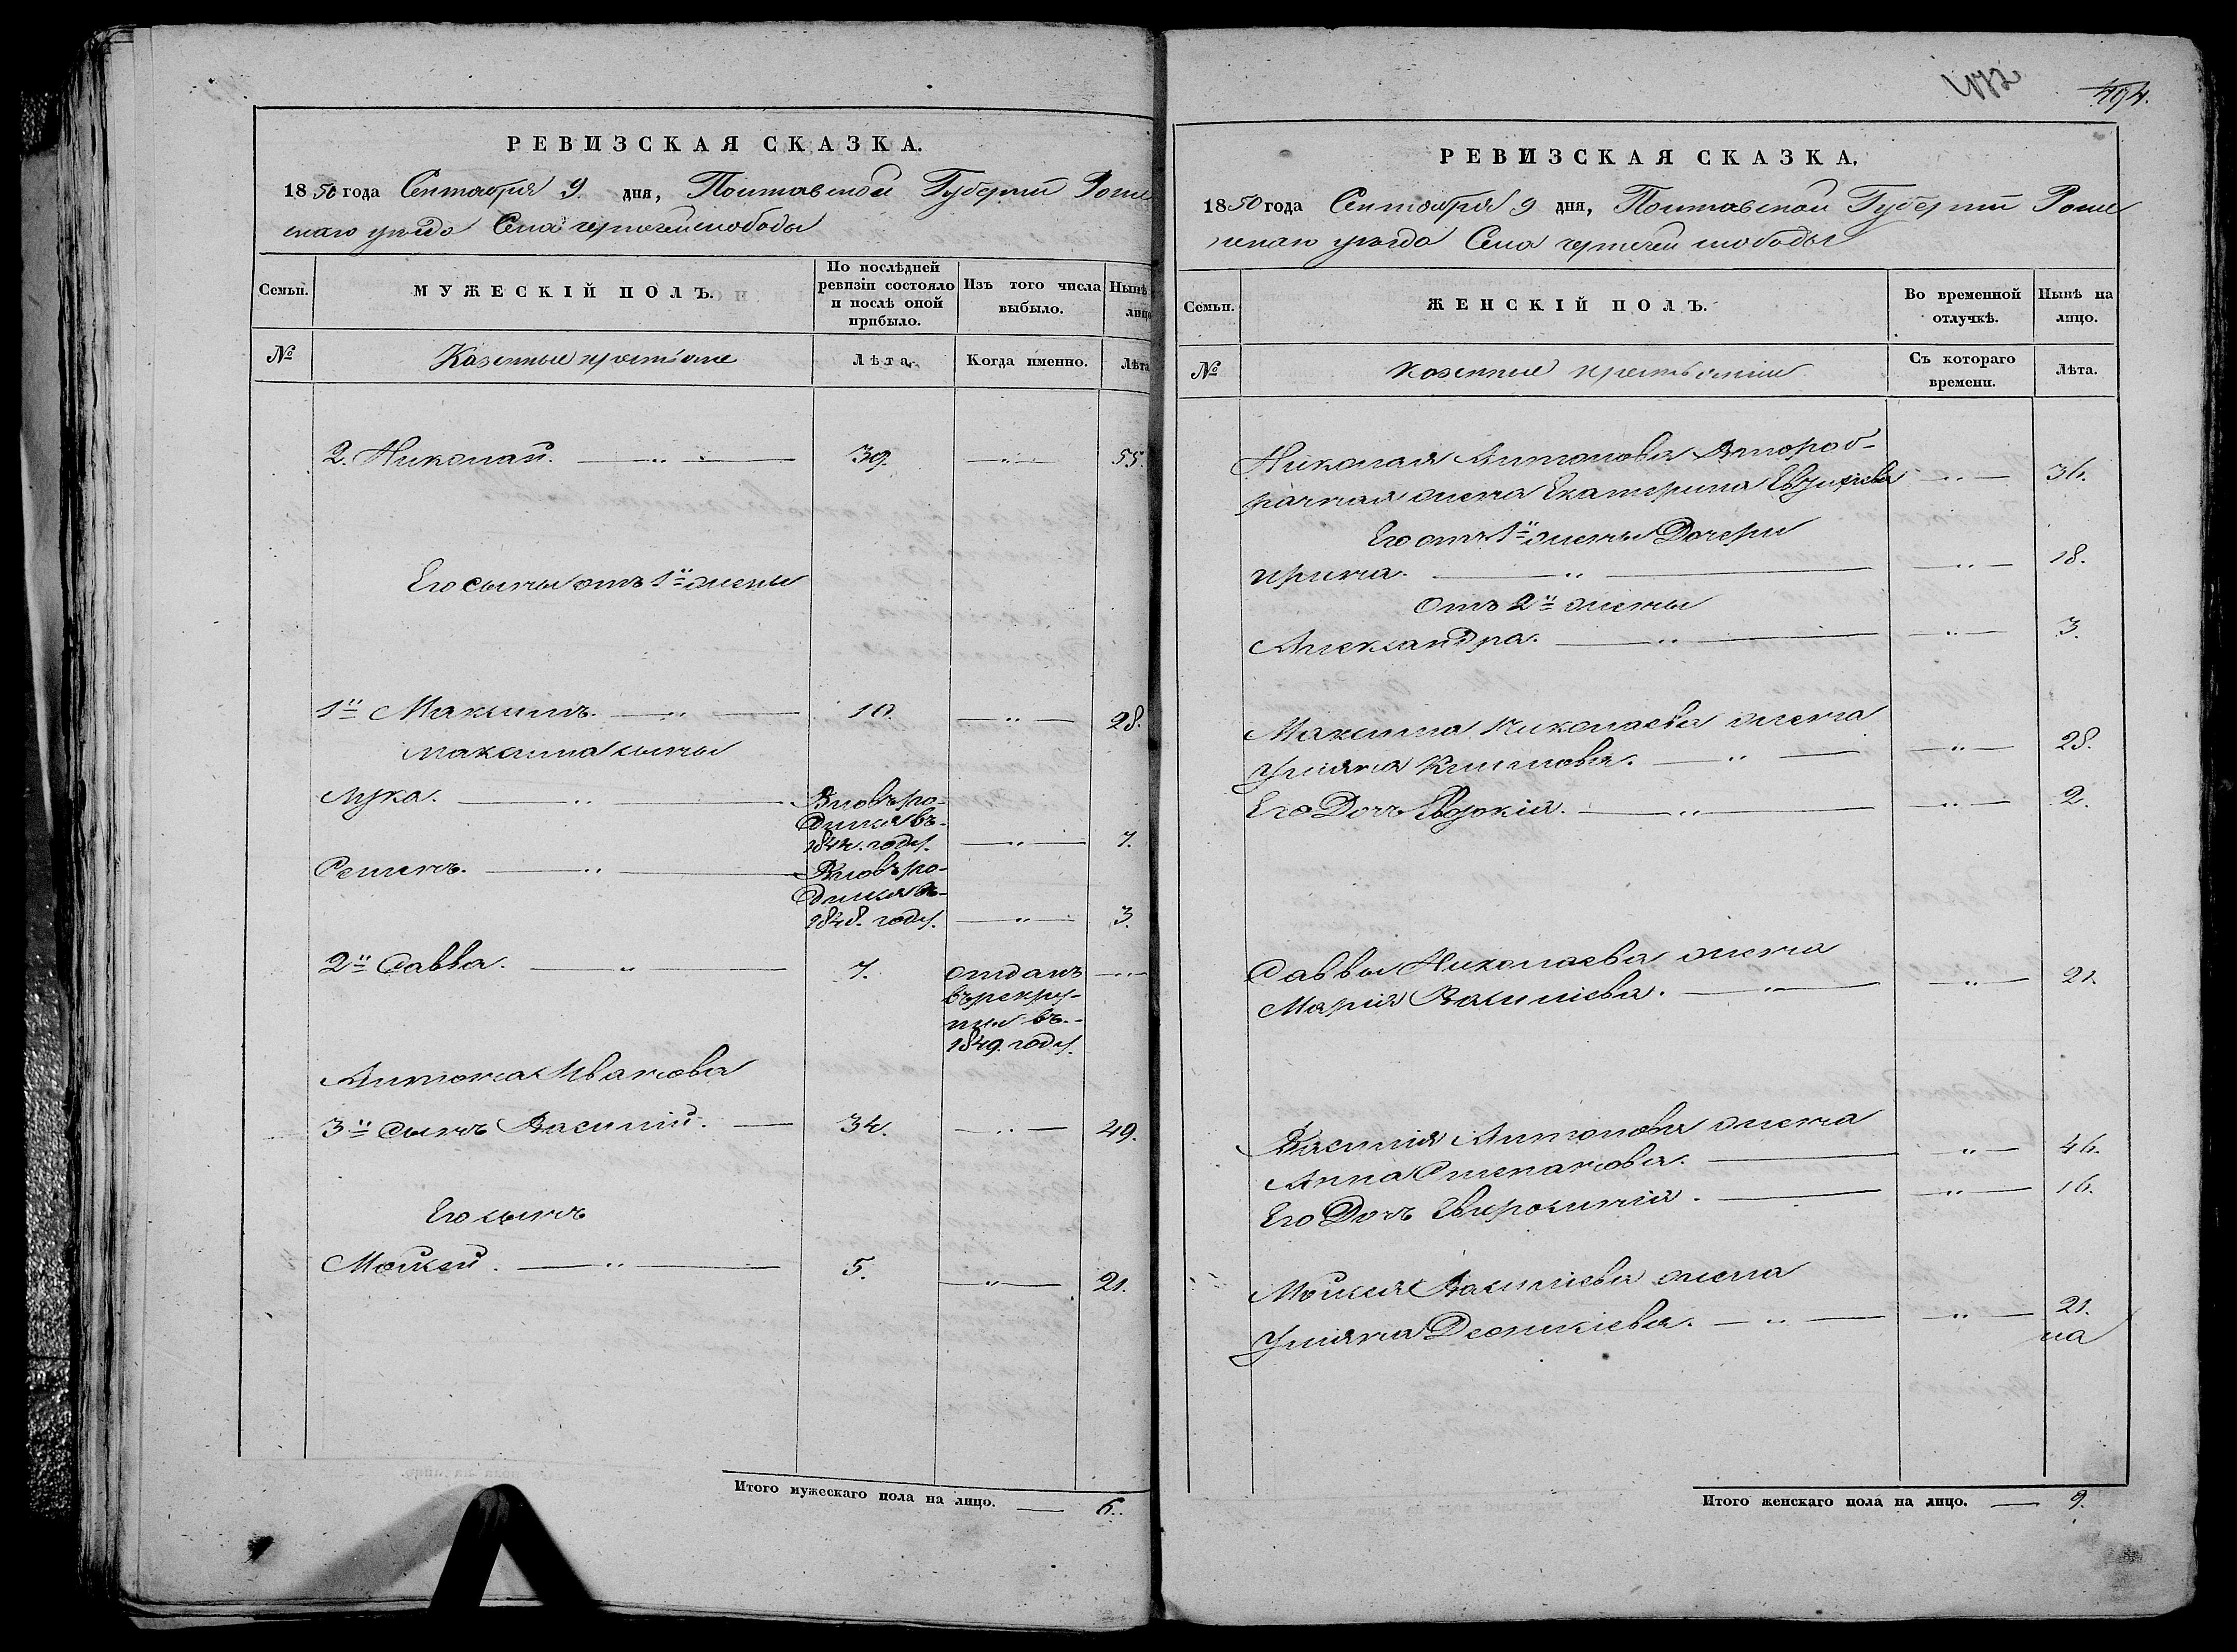 РЕВИЗСКАЯ СКАЗКА.
1850 года Сентября 9. дня, Полтавской Губерніи Роме
скаго уѣзда Села слободы
Семьи.
МУЖЕСКІЙ ПОЛЪ.
По послѣдней ревизіи состояло и послѣ оной прибыло.
Изъ того числа выбыло.
Нынѣ
лицо
№
Казенные крестьяне
Лѣта.
Когда именно.
Лѣта
2. Николай. — 〃 — 39. — 〃 — 55.
Его сыны отъ 1й жены
1й Максимъ. — 〃 — 10. — 〃 — 28.
Максима сыны
Лука. — 〃 — Вновь ро-
дился въ-
1844. году. — 〃 — 7.
Семенъ. — 〃 — Вновь ро-
дился въ-
1848. году. — 〃 — 3.
2й Савва. — 〃 — 7. отданъ — 〃
въ рекру-
ты въ-
1849. году.
Антона Иванова
3й сынъ Василій. — 34. — 〃 — 49.
Его сынъ
Мойсей. — 〃 — 5. — 〃 — 21.
Итого мужескаго пола на лицо. — 6.
494.
РЕВИЗСКАЯ СКАЗКА.
1850 года Сентября 9 дня, Полтавской Губерніи Роме
нскаго уѣзда Села слободы
Семьи.
ЖЕНСКІЙ ПОЛЪ.
Во временной отлучкѣ.
Нынѣ на лицо.
№
Казенные крестьянки
Съ котораго времени.
Лѣта.
Николая Антонова Второб-
рачная жена Екатерина — 〃 — 36.
Его отъ 1й жены Дочери
Ирина. — 〃 — 〃 — 18.
Отъ 2й жены
Александра. — 〃 — 〃 — 3.
Максима Николаева жена
Уліяна Климова. — 〃 — 〃 — 28.
Его Дочь Евдокія. — 〃 — 〃 — 2.
Саввы Николаева жена
Марія Василіева. — 〃 — 〃 — 21.
Василія Антонова жена
Анна Степанова. — 〃 — 46.
Его Дочь Евфросинія. — 〃 — 16.
Мойсея Василіева жена
Уліяна Леонтіева. — 〃 — 〃 — 21.
на
Итого женскаго пола на лицо. — 9.